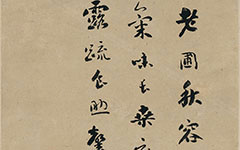 老圃秋容
氣味長桑
露疏食照盤